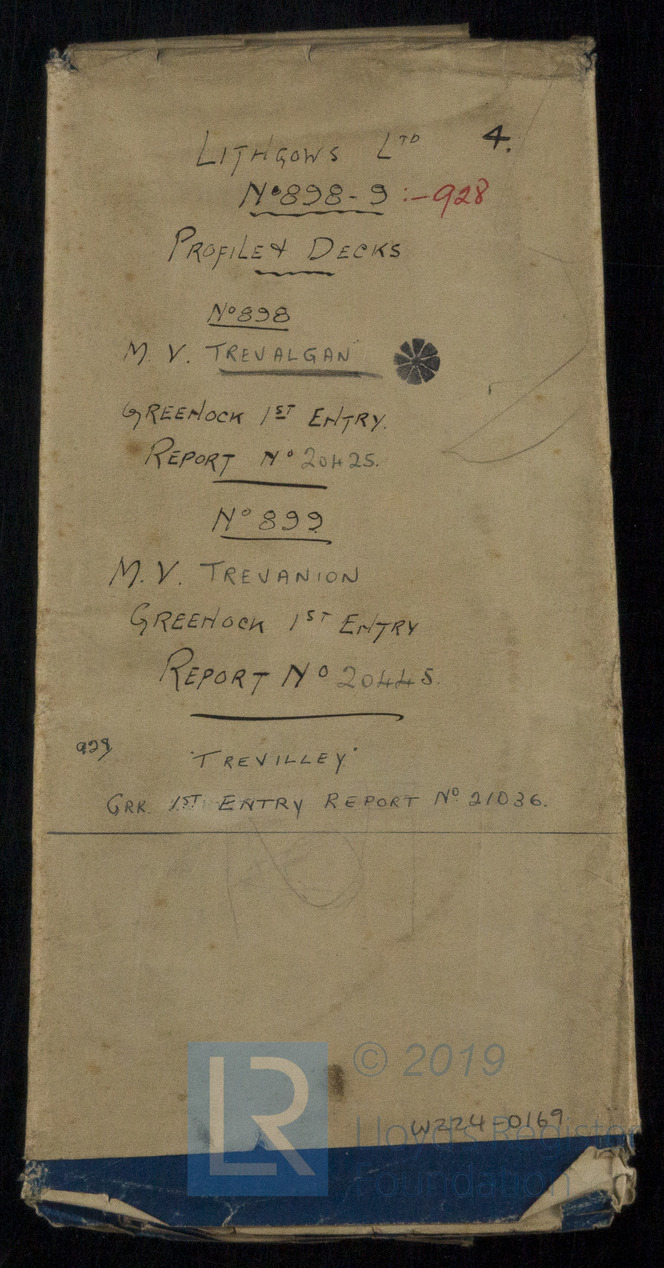 LITHGOWS LTD 4.
No 898-9 :- 928
PROFILE & DECKS
No 898
M. V. TREVALGAN
GREENOCK 1ST ENTRY.
REPORT No 20425.
No 899
M. V. TREVANION
GREENOCK 1ST ENTRY
REPORT No 20445.
928 'TREVILLEY'
GRK. 1ST ENTRY REPORT No 21036.
LR
© 2019
W224-0169
Lloyd's Register
Foundation